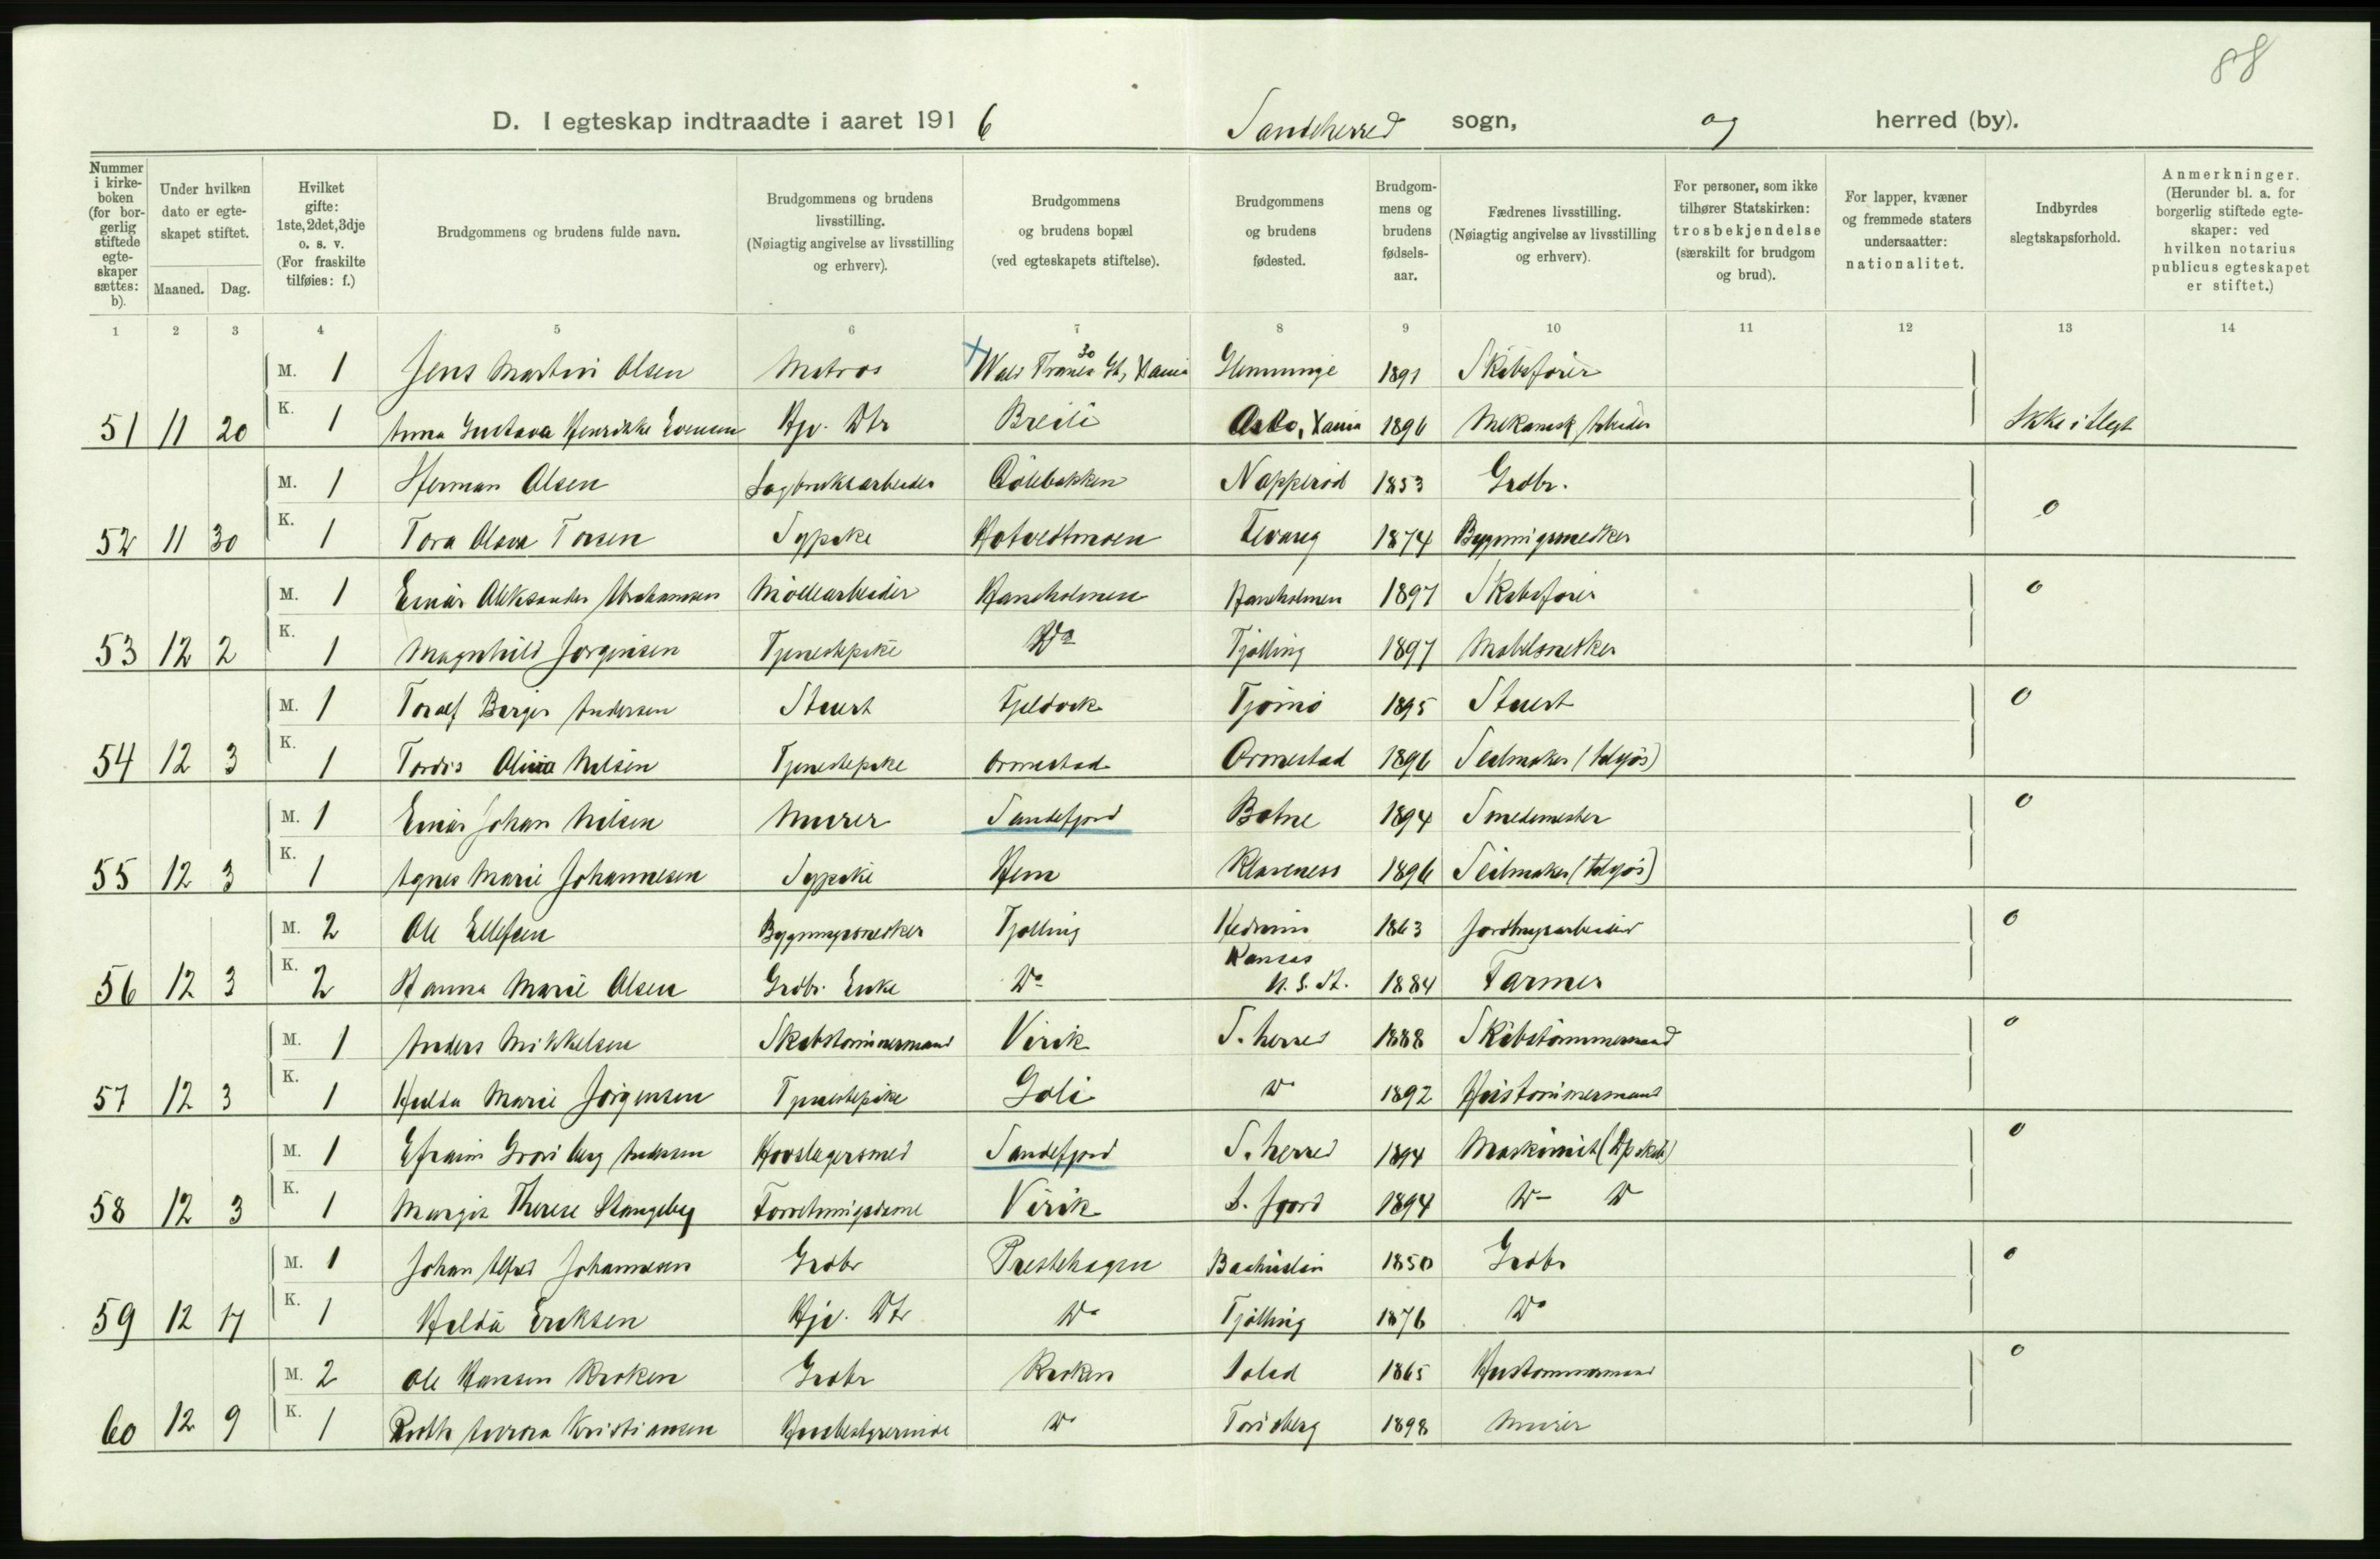 88
D. I egteskap indtraadte i aaret 1916 Sandeherred sogn, og herred (by).
Nummer i kirkeboken (for borgerlig stiftede egteskaper sættes: b).
Under hvilken dato er egteskapet stiftet.
Maaned. Dag.
Hvilket gifte: 1ste, 2det, 3dje o. s. v. (For fraskilte tilføies: f.)
Brudgommens og brudens fulde navn.
Brudgommens og brudens livsstilling. (Nøiagtig angivelse av livsstilling og erhverv).
Brudgommens og brudens bopæl (ved egteskapets stiftelse).
Brudgommens og brudens fødested.
Brudgommens og brudens fødselsaar.
Fædrenes livsstilling. (Nøiagtig angivelse av livsstilling og erhverv).
For personer, som ikke tilhører Statskirken: trosbekjendelse (særskilt for brudgom og brud).
For lapper, kvæner og fremmede staters undersaatter: nationalitet.
Indbyrdes slegtskapsforhold.
Anmerkninger. (Herunder bl. a. for borgerlig stiftede egteskaper: ved hvilken notarius publicus egteskapet er stiftet.)
1 2 3 4 5 6 7 8 9 10 11 12 13 14
M. 1 Jens Martin Olsen Matros Wald Thranes 30 Gt, Xania Glemminge 1891 Skibsfører
51 11 20 K. 1 Anna Gustava Henrikke Evensen Hjv. Dtr Breili Oslo, Xania 1896 Mekanisk Arbeider Ikke i Slegt
M. 1 Herman Olsen Sagbruksarbeider Napperød 1853 Grdbr.
52 11 30 K. 1 Tora Olava Torsen Sypike Hotvedtmoen Fevang 1874 Bygningsnedker 0
M. 1 Einar Aleksander Abrahamsen Møllearbeider Haneholmen Haneholmen 1897 Skibsfører 0
53 12 2 K. 1 Magnhild Jørgensen Tjenestepike Do Tjølling 1897 Møbelsnedker
M. 1 Toralf Birger Andersen Stuert Fjeldvik Tjømø 1895 Stuert 0
54 12 3 K. 1 Tordis Olivia Nilsen Tjenestepike Ormestad Ormestad 1896 Seilmaker (tilsjøs)
M. 1 Einar Johan Nilsen Murer Sandefjord Botne 1894 Smedemester 0
55 12 3 K. 1 Agnes Marie Johannesen Sypike Hem Klaveness 1896 Seilmaker (tilsjøs)
M. 2 Ole Ellefsen Bygningssnedker Tjølling Hedrum 1863 Jordbrugsarbeider 0
56 12 3 K. 2 Hanna Marie Olsen Grdbr. Enke Do Kansas U. S. A. 1884 Farmer
M. 1 Anders Mikkelsen Skibstømmermand Virik S. herred 1888 Skibstømmermand 0
57 12 3 K. 1 Hulda Marie Jørgensen Tjenestepike Goli Do 1892 Hustømmermand
M. 1 Efraim Andersen Hovslagersmed Sandefjord S. herred 1894 Maskinist (Dpskib) 0
58 12 3 K. 1 Margit Therese Stangeby Forretningsdame Virik S. fjord 1894 Do Do
M. 1 Johan Alfred Johannesen Grdbr Prestehagen Baahuslen 1850 Grdbr 0
59 12 17 K. 1 Hulda Eriksen Hjv. Dtr Do Tjølling 1876 Do
M. 2 Ole Hansen Kroken Grdbr Kroken 1865 Hustømmermand 0
60 12 9 K. 1 Ruth Aurora Kristiansen Husbestyrerinde Do Tønsberg 1898 Murer